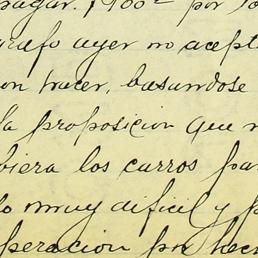 pagar. 1900 por lo
grafo ayer no acept
on hacer, basandose
la proposicion que
biera los carros par
lo muy dificil y p
peracion por hec